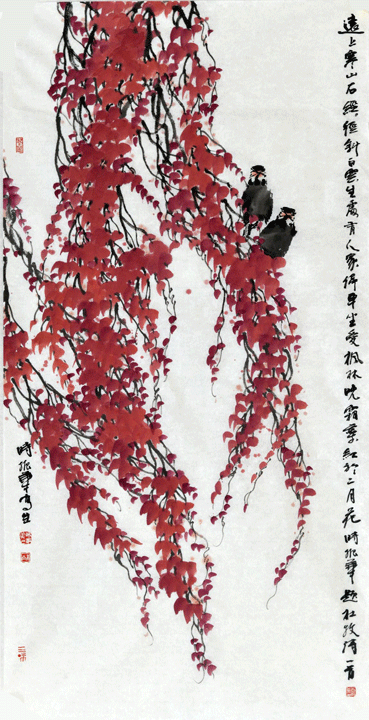 遠上寒山石經徑斜白雲生處有人家停車坐愛楓林晚霜葉紅於二月花時振華題杜牧詩一首
時振華寫生